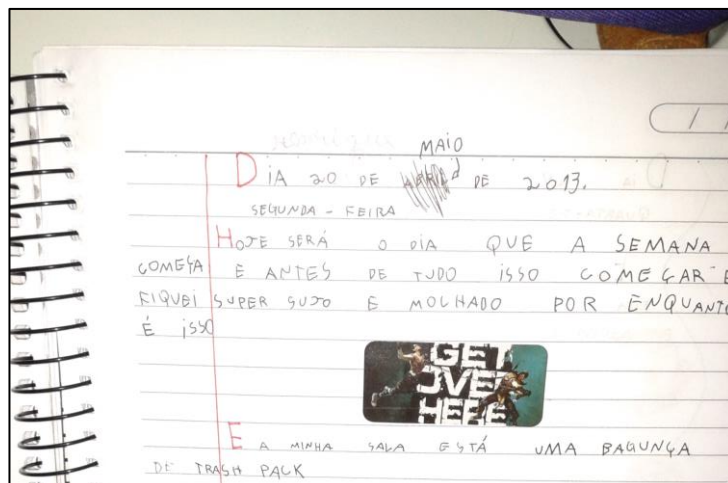 MAIO
DIA 20 DE DE 2013.
SEGUNDA - FEIRA
HOJE SERÁ O DIA QUE A SEMANA
COMEÇA E ANTES DE TUDO ISSO COMEÇAR E
FIQUEI SUPER SUJO E MOLHADO POR ENQUANTO
É ISSO
GET
OVER
HERE
E A MINHA SALA ESTÁ UMA BAGUNÇA
DE TRASH PACK